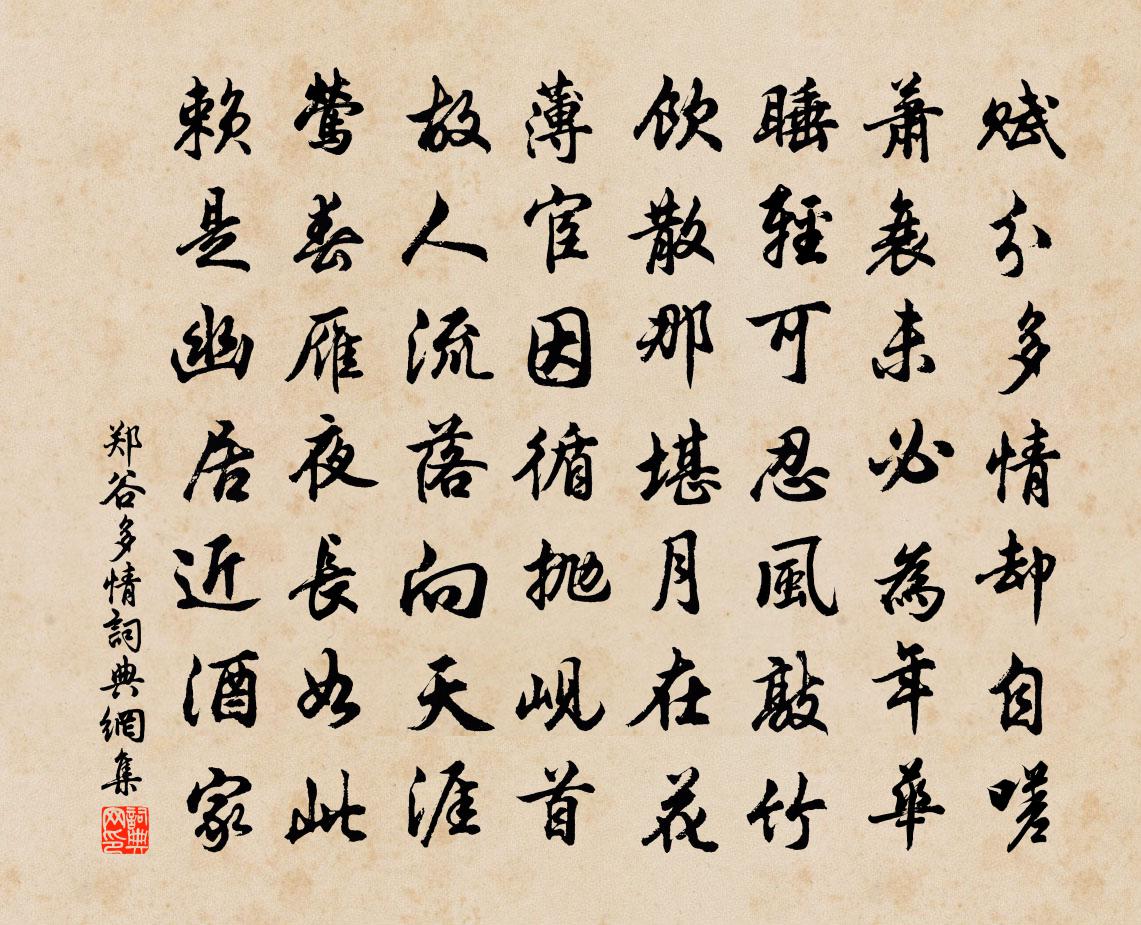 賦分多情却自嗟
蕭衰未必為年華
睡輕可忍風敲竹
飲散那堪月在花
薄宦因循抛峴首
故人流落向天涯
鶯春雁夜長如此
賴是幽居近酒家
郑谷多情詞典網集
詞典网印